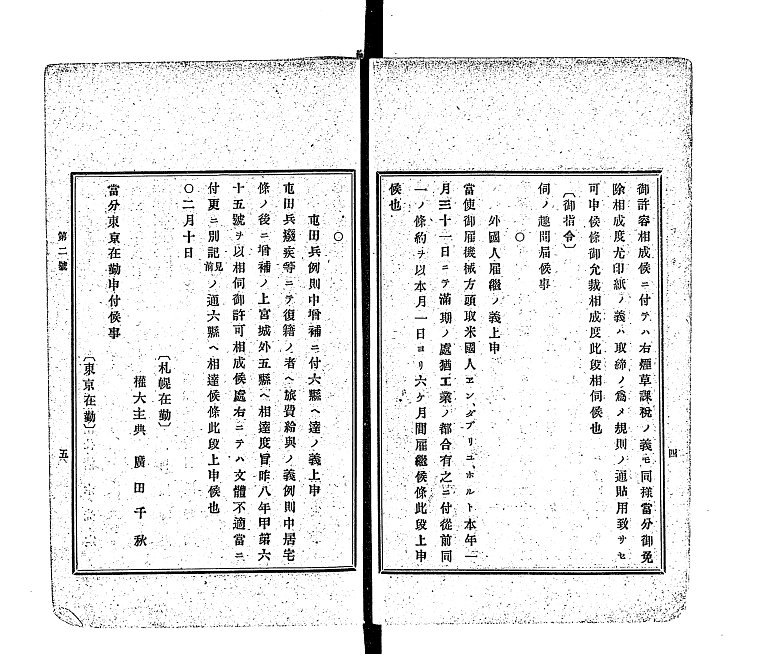 四
御許容相成候ニ付テハ右煙草課税ノ義モ同樣當分御免
除相成度尤印紙ノ義ハ取締ノ爲メ規則ノ通貼用致サセ
可申候條御允裁相成度此段相伺候也
〔御指令〕
伺ノ趣聞届候事
○
外國人雇繼ノ義上申
當使御雇機械方頭取米國人エン、ダブリユ、ホルト本年一
月三十一日ニテ滿期ノ處猶工業ノ都合有之ニ付從前同
一ノ條約ヲ以本月一日ヨリ六ケ月間雇繼候條此段上申
候也
○
屯田兵例則中增補ニ付六縣ヘ達ノ義上申
屯田兵癈疾等ニテ復籍ノ者ヘ旅費給與ノ義例則中居宅
條ノ後ニ增補ノ上宮城外五縣ヘ相達度旨昨八年甲第六
十五號ヲ以相伺御許可相成候處右ニテハ文體不適當ニ
付更ニ別記前見ノ通六縣ヘ相達候條此段上申候也
○二月十日
〔札幌在勤〕
權大主典 廣田千秋
當分東京在勤申付候事
〔東京在勤〕
第二號
五